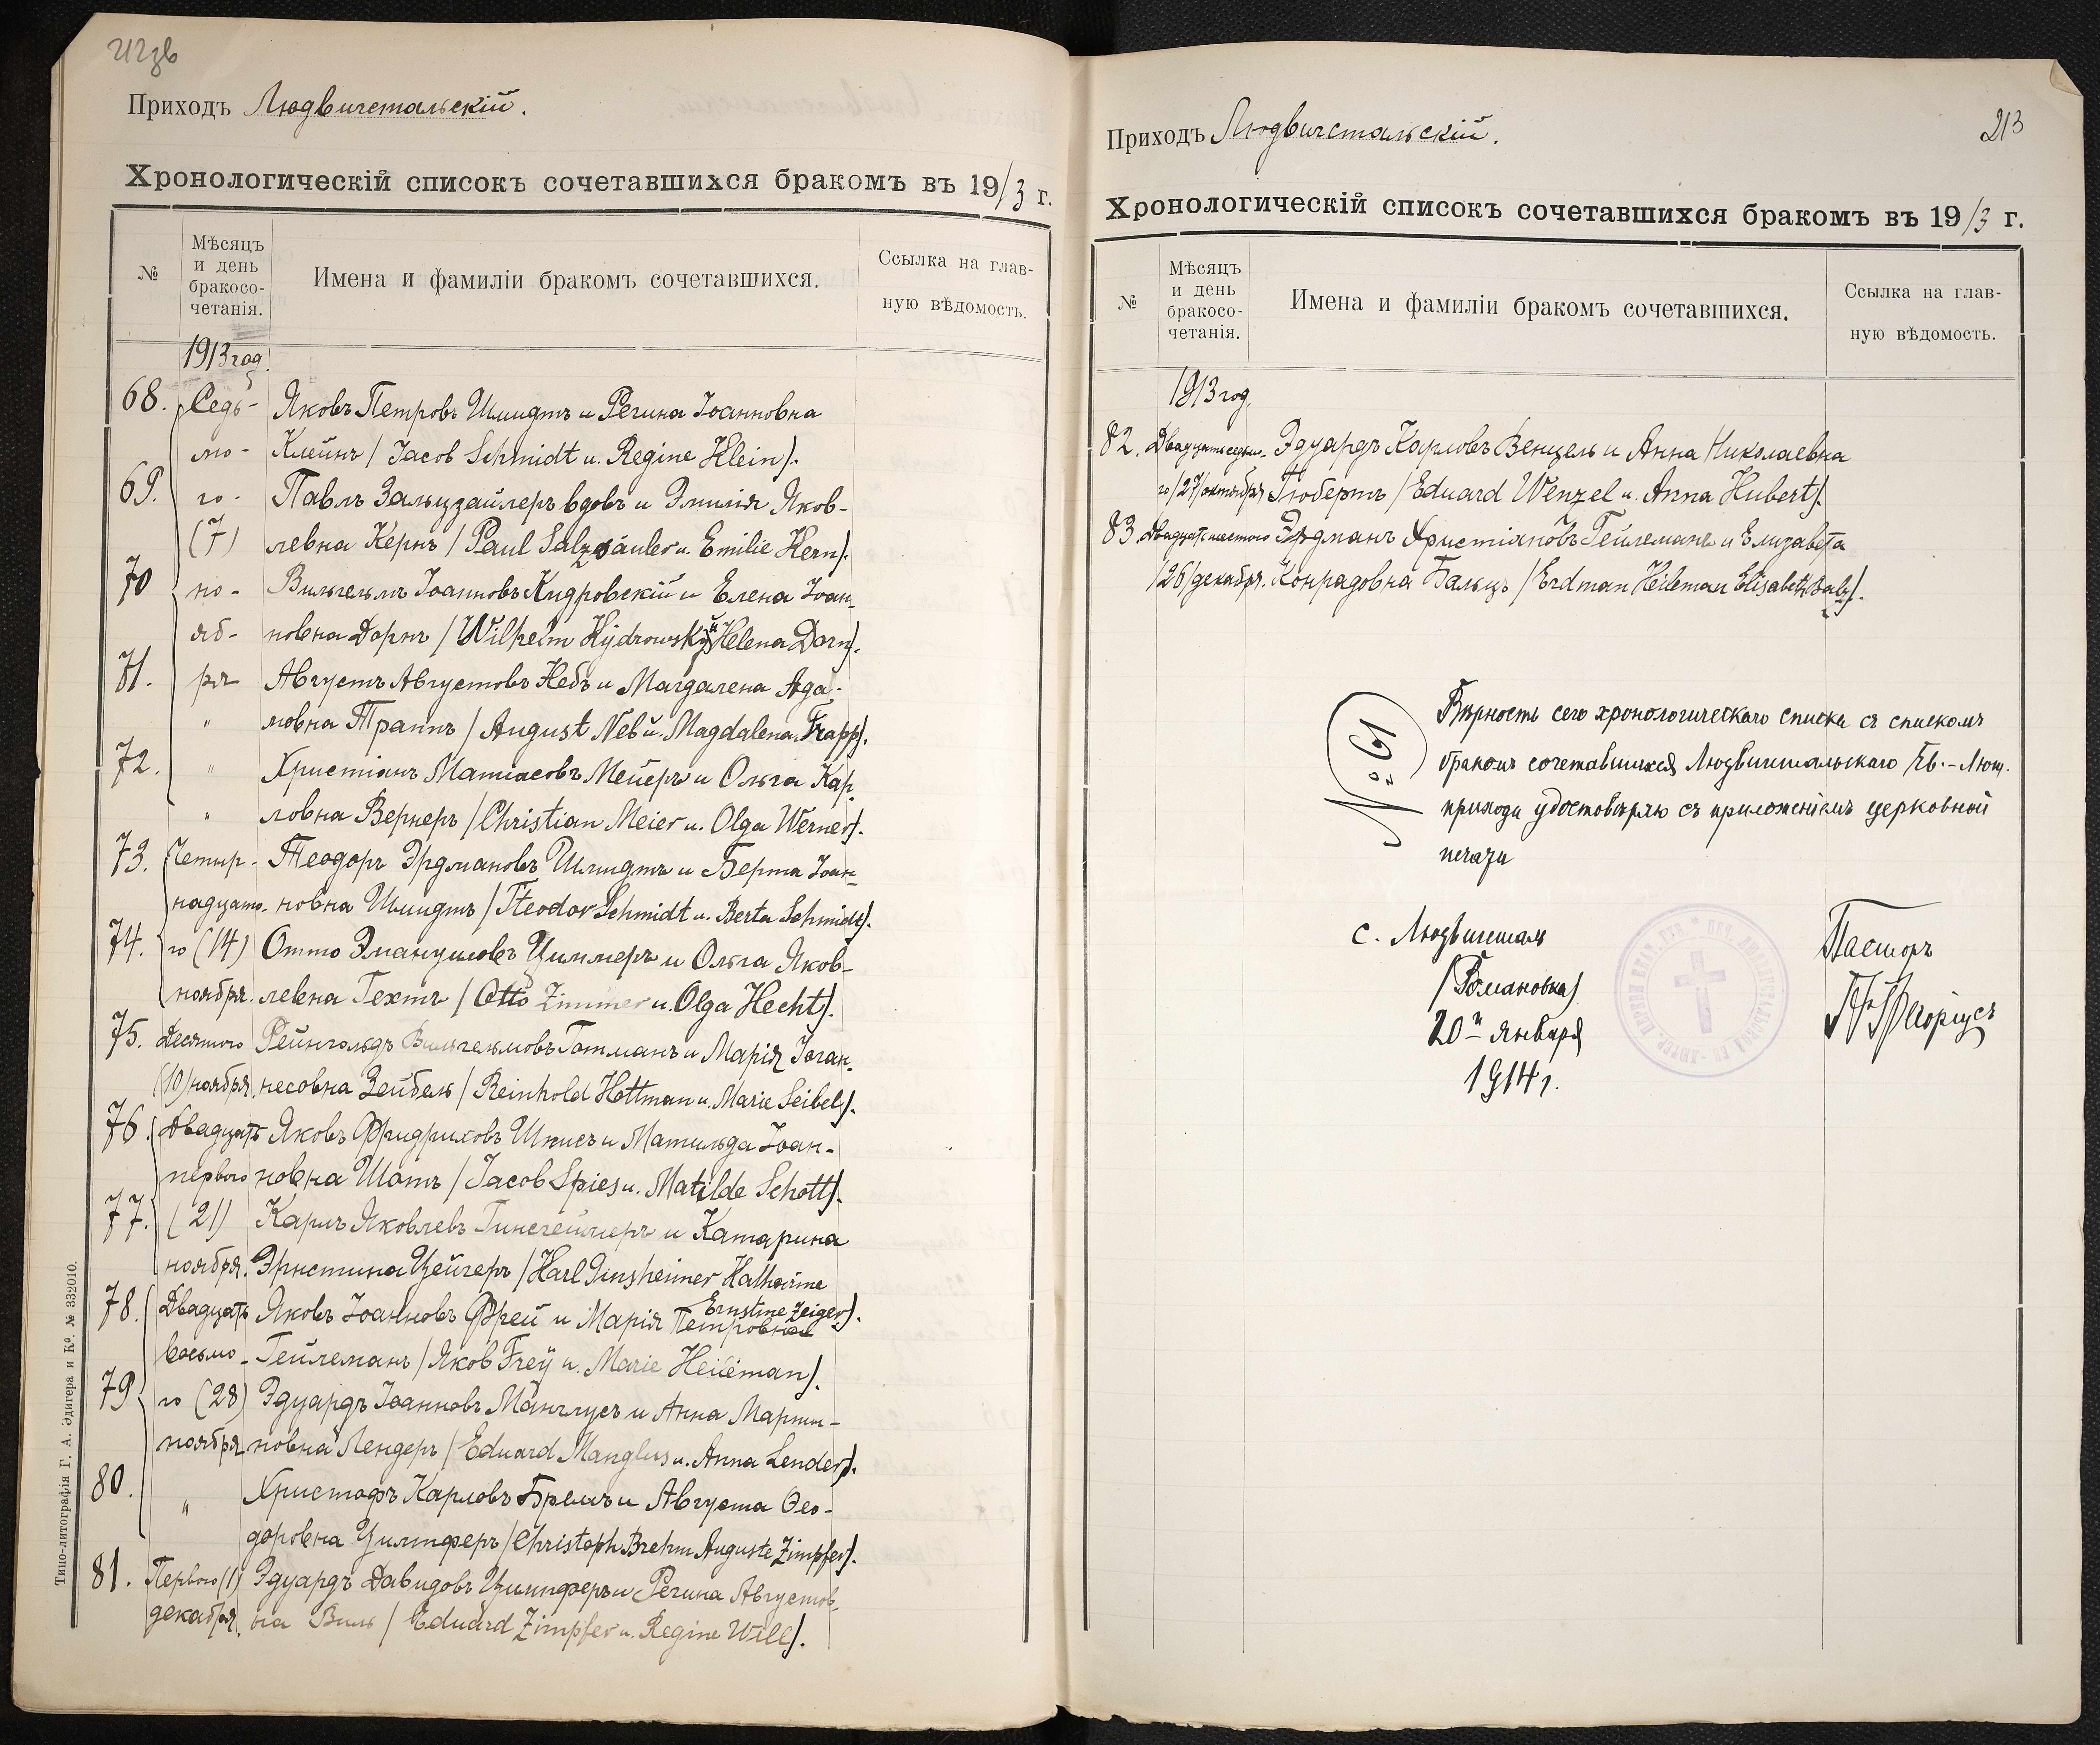 Приходъ Людвигстальскій.
Хронологическій списокъ сочетавшихся бракомъ въ 1913 г.
№
Мѣсяцъ и день бракосо-четанія.
Имена и фамиліи бракомъ сочетавшихся.
Ссылка на глав-ную вѣдомость.
1913 год.
68. Седь- Яковъ Петровъ Шмидтъ и Регина Іоанновна
мо- Клейнъ / Jacob Schmidt u. Regine Klein).
69. го- Павлъ Зальцзайлеръ вдовъ и Эмилія Яков-
(7) левна Кернъ / Paul Salzsäuler u. Emilie Kern).
70 но- Вильгельмъ Іоанновъ Кидровскій и Елена Іоан-
яб- новна Дорнъ / Wilhelm Kydrowsky u Helena Dorn).
71. ря Августъ Августовъ Небъ и Магдалена Ада-
" мовна Траппъ / August Neb u. Magdalena Trapp).
72. " Христіанъ Матіасовъ Мейеръ и Ольга Кар-
" ловна Вернеръ / Christian Meier u. Olga Werner).
73. Четыр- Теодоръ Эрдмановъ Шмидтъ и Берта Іоан-
надцато- новна Шмидтъ / Teodor Schmidt u. Berta Schmidt).
74. го (14) Отто Эмануиловъ Циммеръ и Ольга Яков-
ноября. левна Гехтъ / Otto Zimmer u. Olga Hecht).
75. Десятого Рейнгольдъ Вильгельмовъ Готманъ и Марія Іоган-
(10) ноября. несовна Зейбель / Reinhold Hottman u. Marie Seibel).
76. Двадцать Яковъ Фридриховъ Шписъ и Матильда Іоан-
первого новна Шотъ / Jacob Spies u. Matilde Schott).
77. (21) Карлъ Яковлевъ Гинсгеймеръ и Катарина
ноября. Эрнстина Цейгеръ / Karl Ginsheimer Katharine
Ernstine Zeiger).
78. Двадцать Яковъ Іоанновъ Фрей и Марія Петровна
восьмо- Гейлеманъ / Яков Frey u. Marie Heileman).
79 го (28) Эдуардъ Іоанновъ Манглусъ и Анна Марти-
ноября новна Лендеръ / Eduard Manglus u. Anna Lender).
80. " Христофъ Карловъ Бремъ и Августа Ѳео-
доровна Цимпферъ / Christoph Brehm Auguste Zimpfer).
81. Первого (1) Эдуардъ Давидовъ Цимпферъ и Регина Августов-
декабря. на Виль / Eduard Zimpfer u. Regine Will).
Типо-литографія Г. А. Эдигера и Кº. № 332010.
Приходъ Людвигстальскій.
213
Хронологическій списокъ сочетавшихся бракомъ въ 1913 г.
№
Мѣсяцъ и день бракосо-четанія.
Имена и фамиліи бракомъ сочетавшихся.
Ссылка на глав-ную вѣдомость.
1913 год.
82. Двадцатьседьмо- Эдуардъ Карловъ Венцель и Анна Николаевна
го /27/ октября Гюбертъ / Eduard Wenzel u. Anna Hubert).
83. Двадцатьшестого Эрдманъ Христіановъ Гейлеманъ и Елизавета
/26/ декабря. Конрадовна Бальцъ / Erdman Heileman Elisabeth Balz).
№ 61
Вѣрность сего хронологическаго списка съ спискомъ
бракомъ сочетавшихся Людвигстальскаго Ев.-Лют.
прихода удостовѣряю съ приложеніемъ церковной
печати
с. Людвигсталь
/Романовка)
20го января
1914 г.
Пасторъ